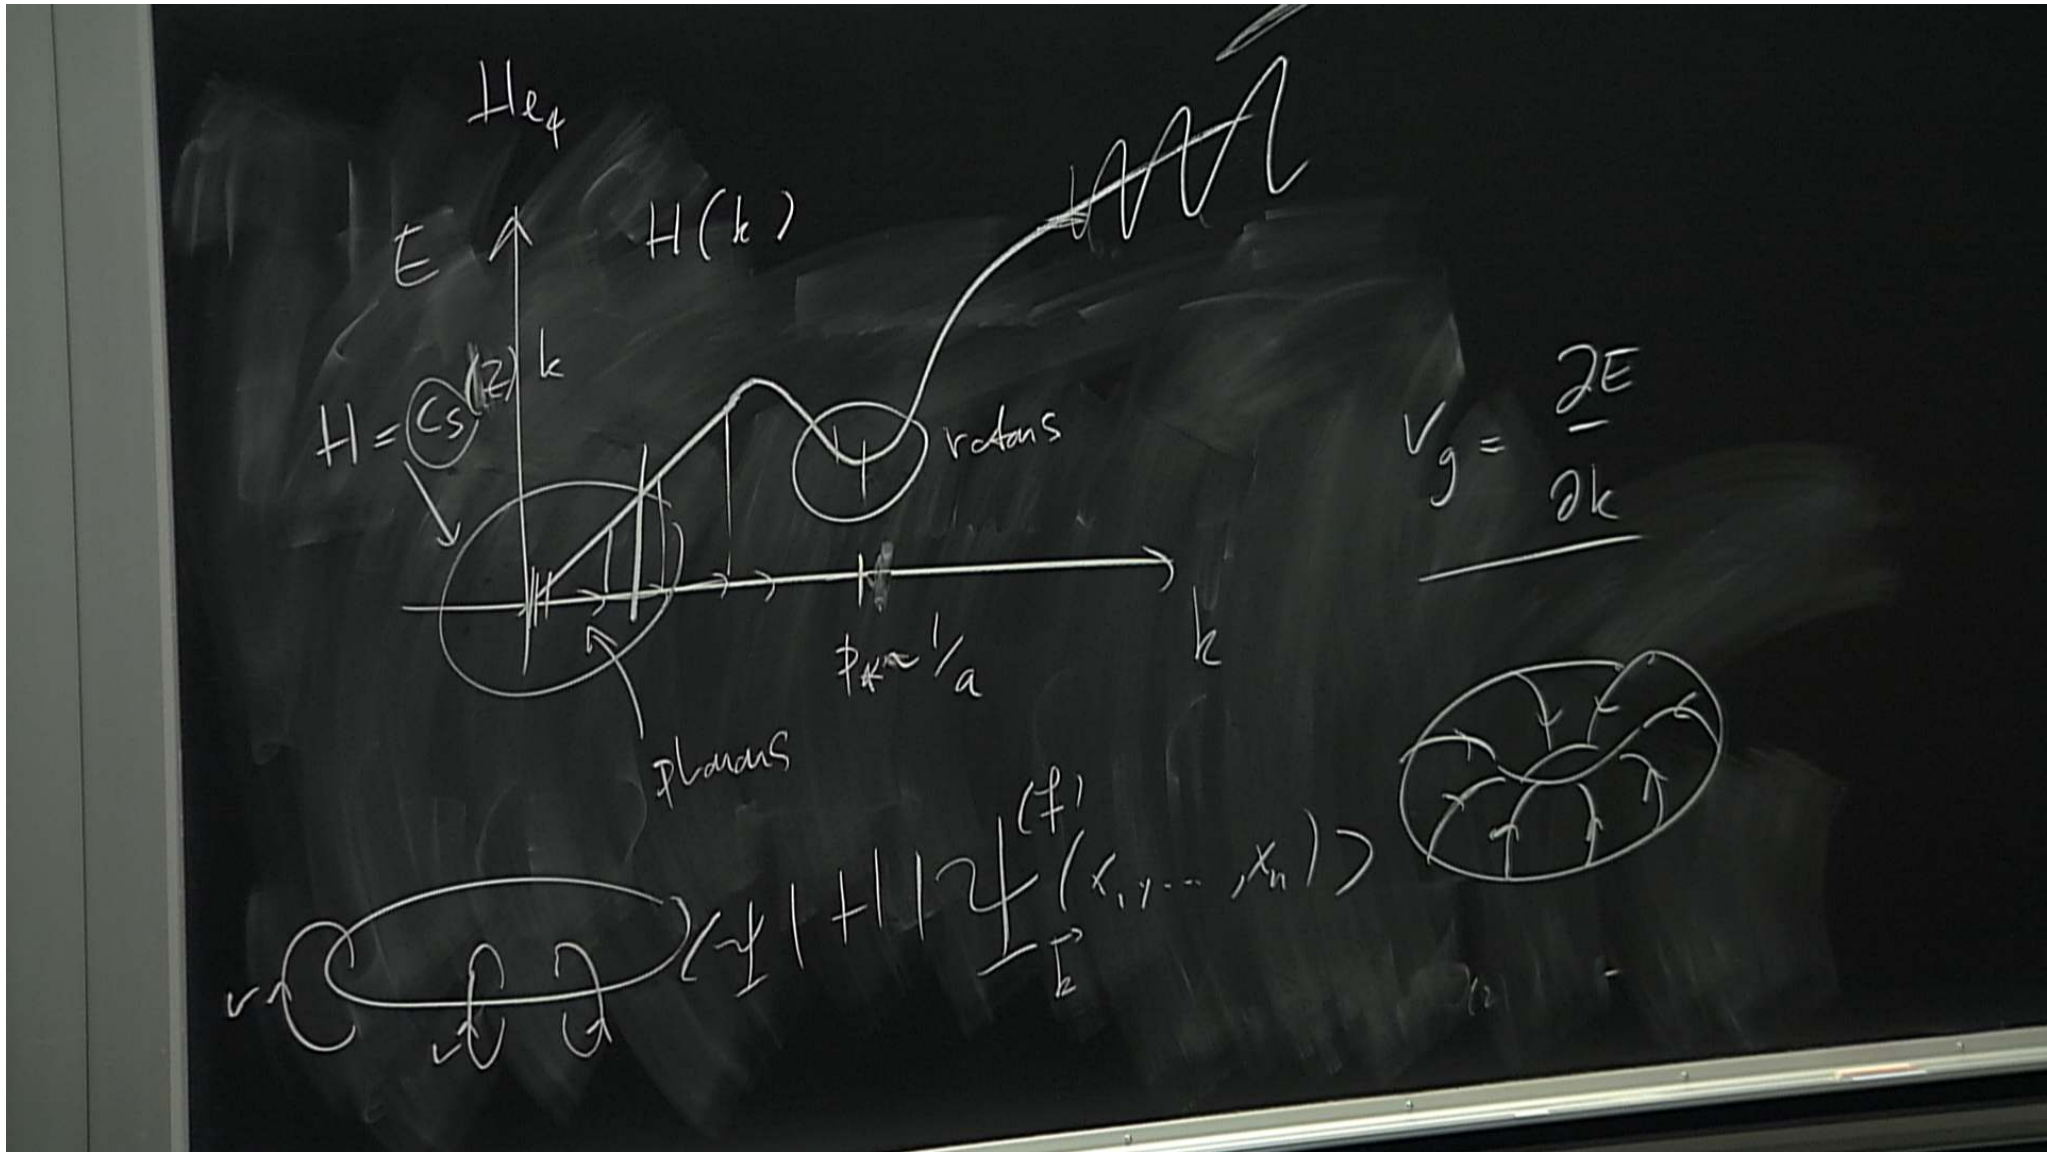 He₄
E
H(k)
H = c_s(z) k
rotons
v_g = ∂E/∂k
p_* ~ 1/a
k
phonons
⟨Ψ|H|Ψ_k⃗^(f)(x₁, ..., x_n)⟩